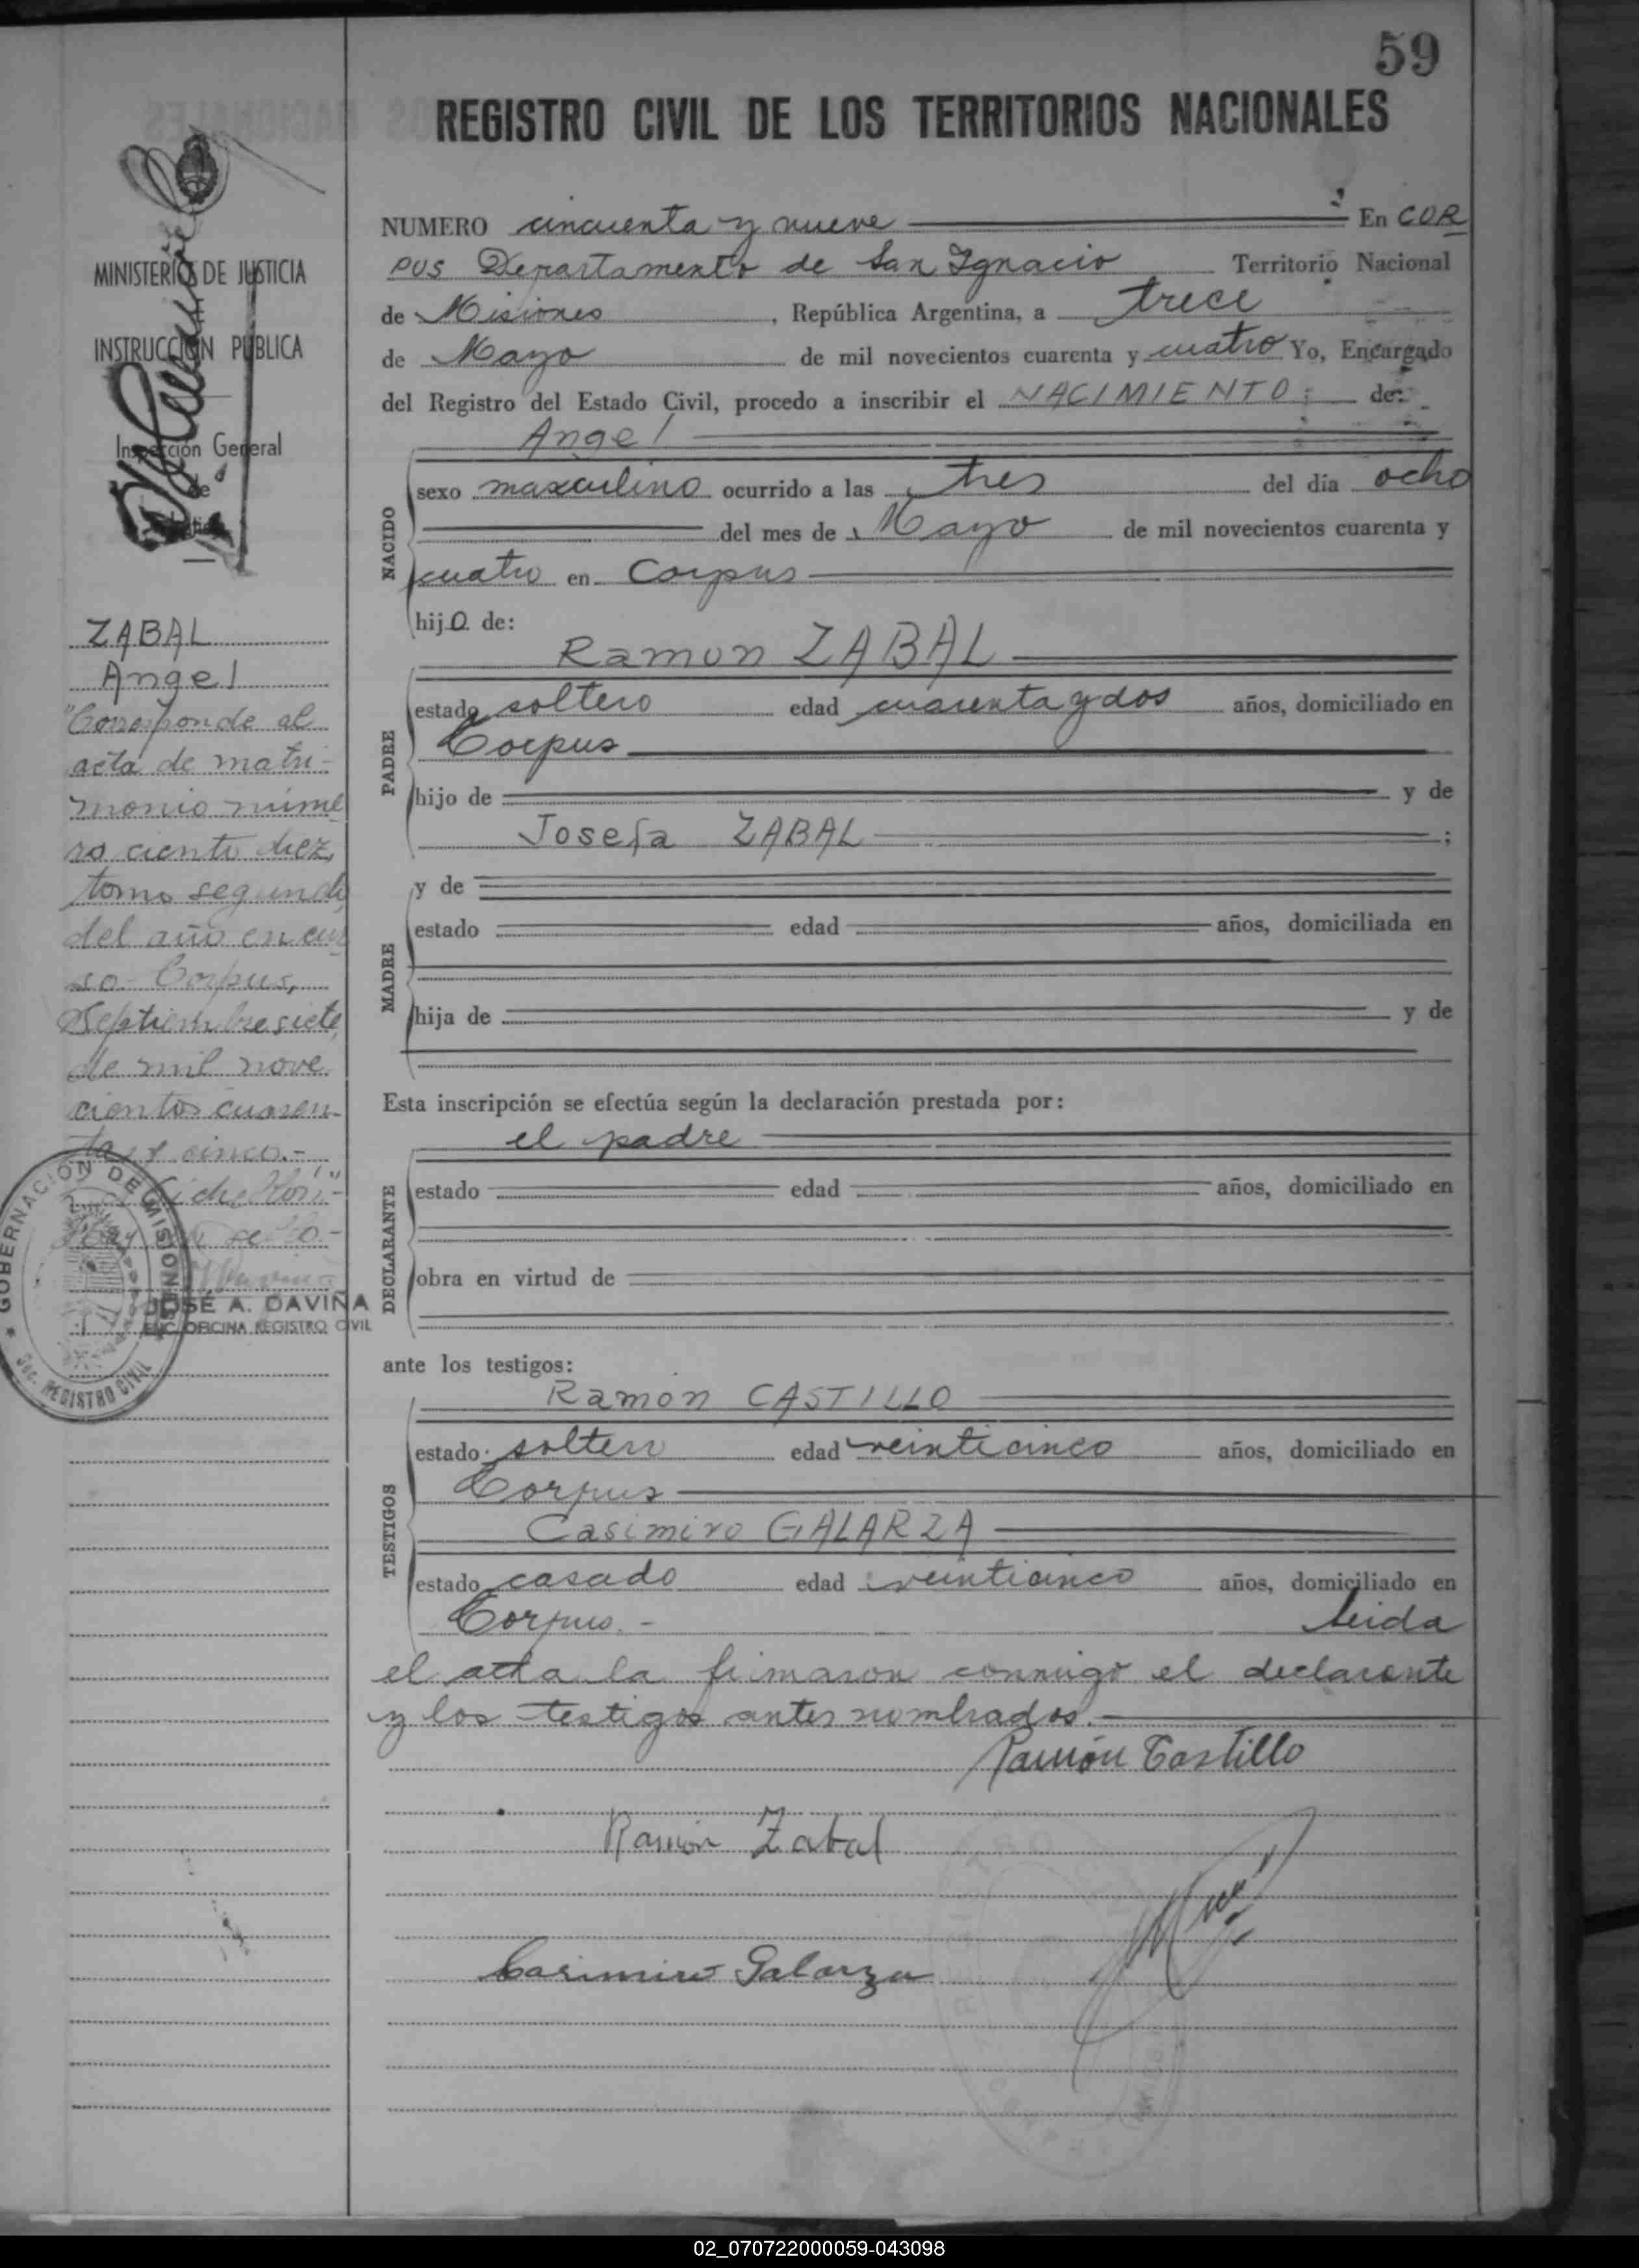 59
REGISTRO CIVIL DE LOS TERRITORIOS NACIONALES
MINISTERIO DE JUSTICIA
INSTRUCCIÓN PÚBLICA
Inspección General
de
ZABAL
Angel
"Corresponde al
acta de matri-
monio núme
ro ciento diez,
tomo segundo
del año en cur
so- Corpus,
Septiembre siete
de mil nove
cientos cuaren-
ta y cinco.-
GOBERNACION DE MISIONES
Sec. REGISTRO CIVIL
JOSÉ A. DAVIÑA
ENC. OFICINA REGISTRO CIVIL
NUMERO cincuenta y nueve En COR
PUS Departamento de San Ignacio Territorio Nacional
de Misiones, República Argentina, a trece
de Mayo de mil novecientos cuarenta y cuatro Yo, Encargado
del Registro del Estado Civil, procedo a inscribir el NACIMIENTO: de:
Angel
NACIDO
sexo masculino ocurrido a las tres del día ocho
del mes de Mayo de mil novecientos cuarenta y
cuatro en Corpus
hijo de:
PADRE
Ramon ZABAL
estado soltero edad cuarenta y dos años, domiciliado en
Corpus
hijo de y de
Josefa ZABAL;
MADRE
y de
estado edad años, domiciliada en
hija de y de
Esta inscripción se efectúa según la declaración prestada por:
DECLARANTE
el padre
estado edad años, domiciliado en
obra en virtud de
ante los testigos:
TESTIGOS
Ramón CASTILLO
estado soltero edad veinticinco años, domiciliado en
Corpus
Casimiro GALARZA
estado casado edad veinticinco años, domiciliado en
Corpus.- Leida
el acta la firmaron conmigo el declarante
y los testigos antes nombrados.-
Ramón Castillo
Ramón Zabal
Casimiro Galarza
02_070722000059-043098